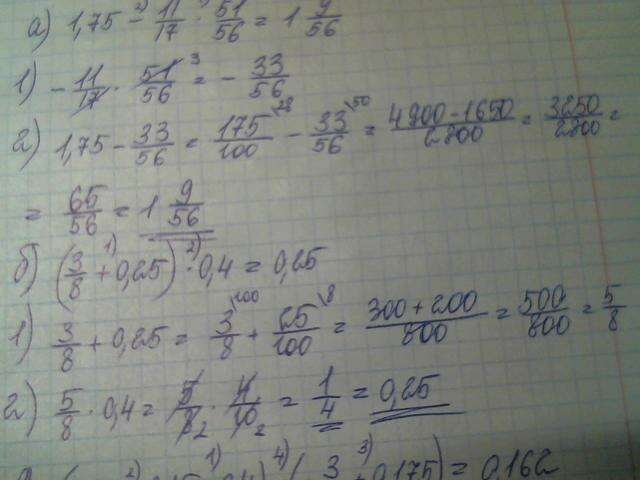 а) 1,75 - 11/17 · 51/56 = 1 9/56
1) - 11/17 · 51/56 ³ = - 33/56
2) 1,75 - 33/56 = 175/100 \28 - 33/56 \50 = 4900-1650/2800 = 3250/2800 =
= 65/56 = 1 9/56
б) (3/8 + 1) 0,25) · 2) 0,4 = 0,25
1) 3/8 + 0,25 = 3/8 \100 + 25/100 \8 = 300+200/800 = 500/800 = 5/8
2) 5/8 · 0,4 = 5/8 2 · 4/10 2 = 1/4 = 0,25
2) 1) 4) 3 3) 0,175) = 0,162